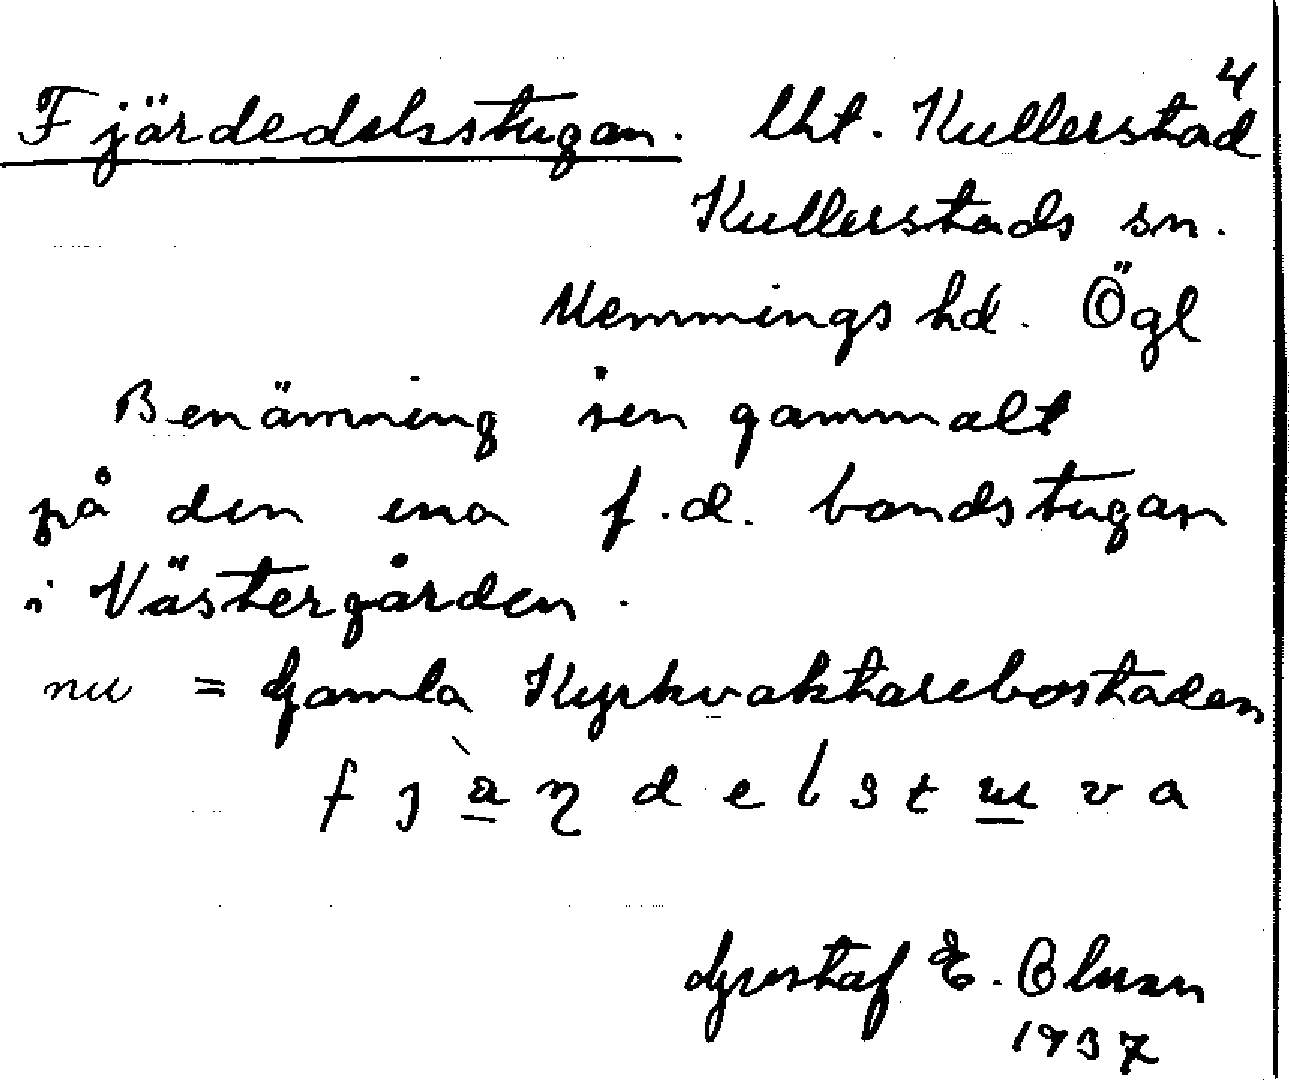 4
Fjärdedelsstugan. lht. Kullerstad
Kullerstads sn.
Memmings hd. Ögl
Benämning sen gammalt
på den ena f.d. bondstugan
i Västergården.
nu = Gamla Kyrkvaktarebostaden
Gustaf E. Olsson
1937